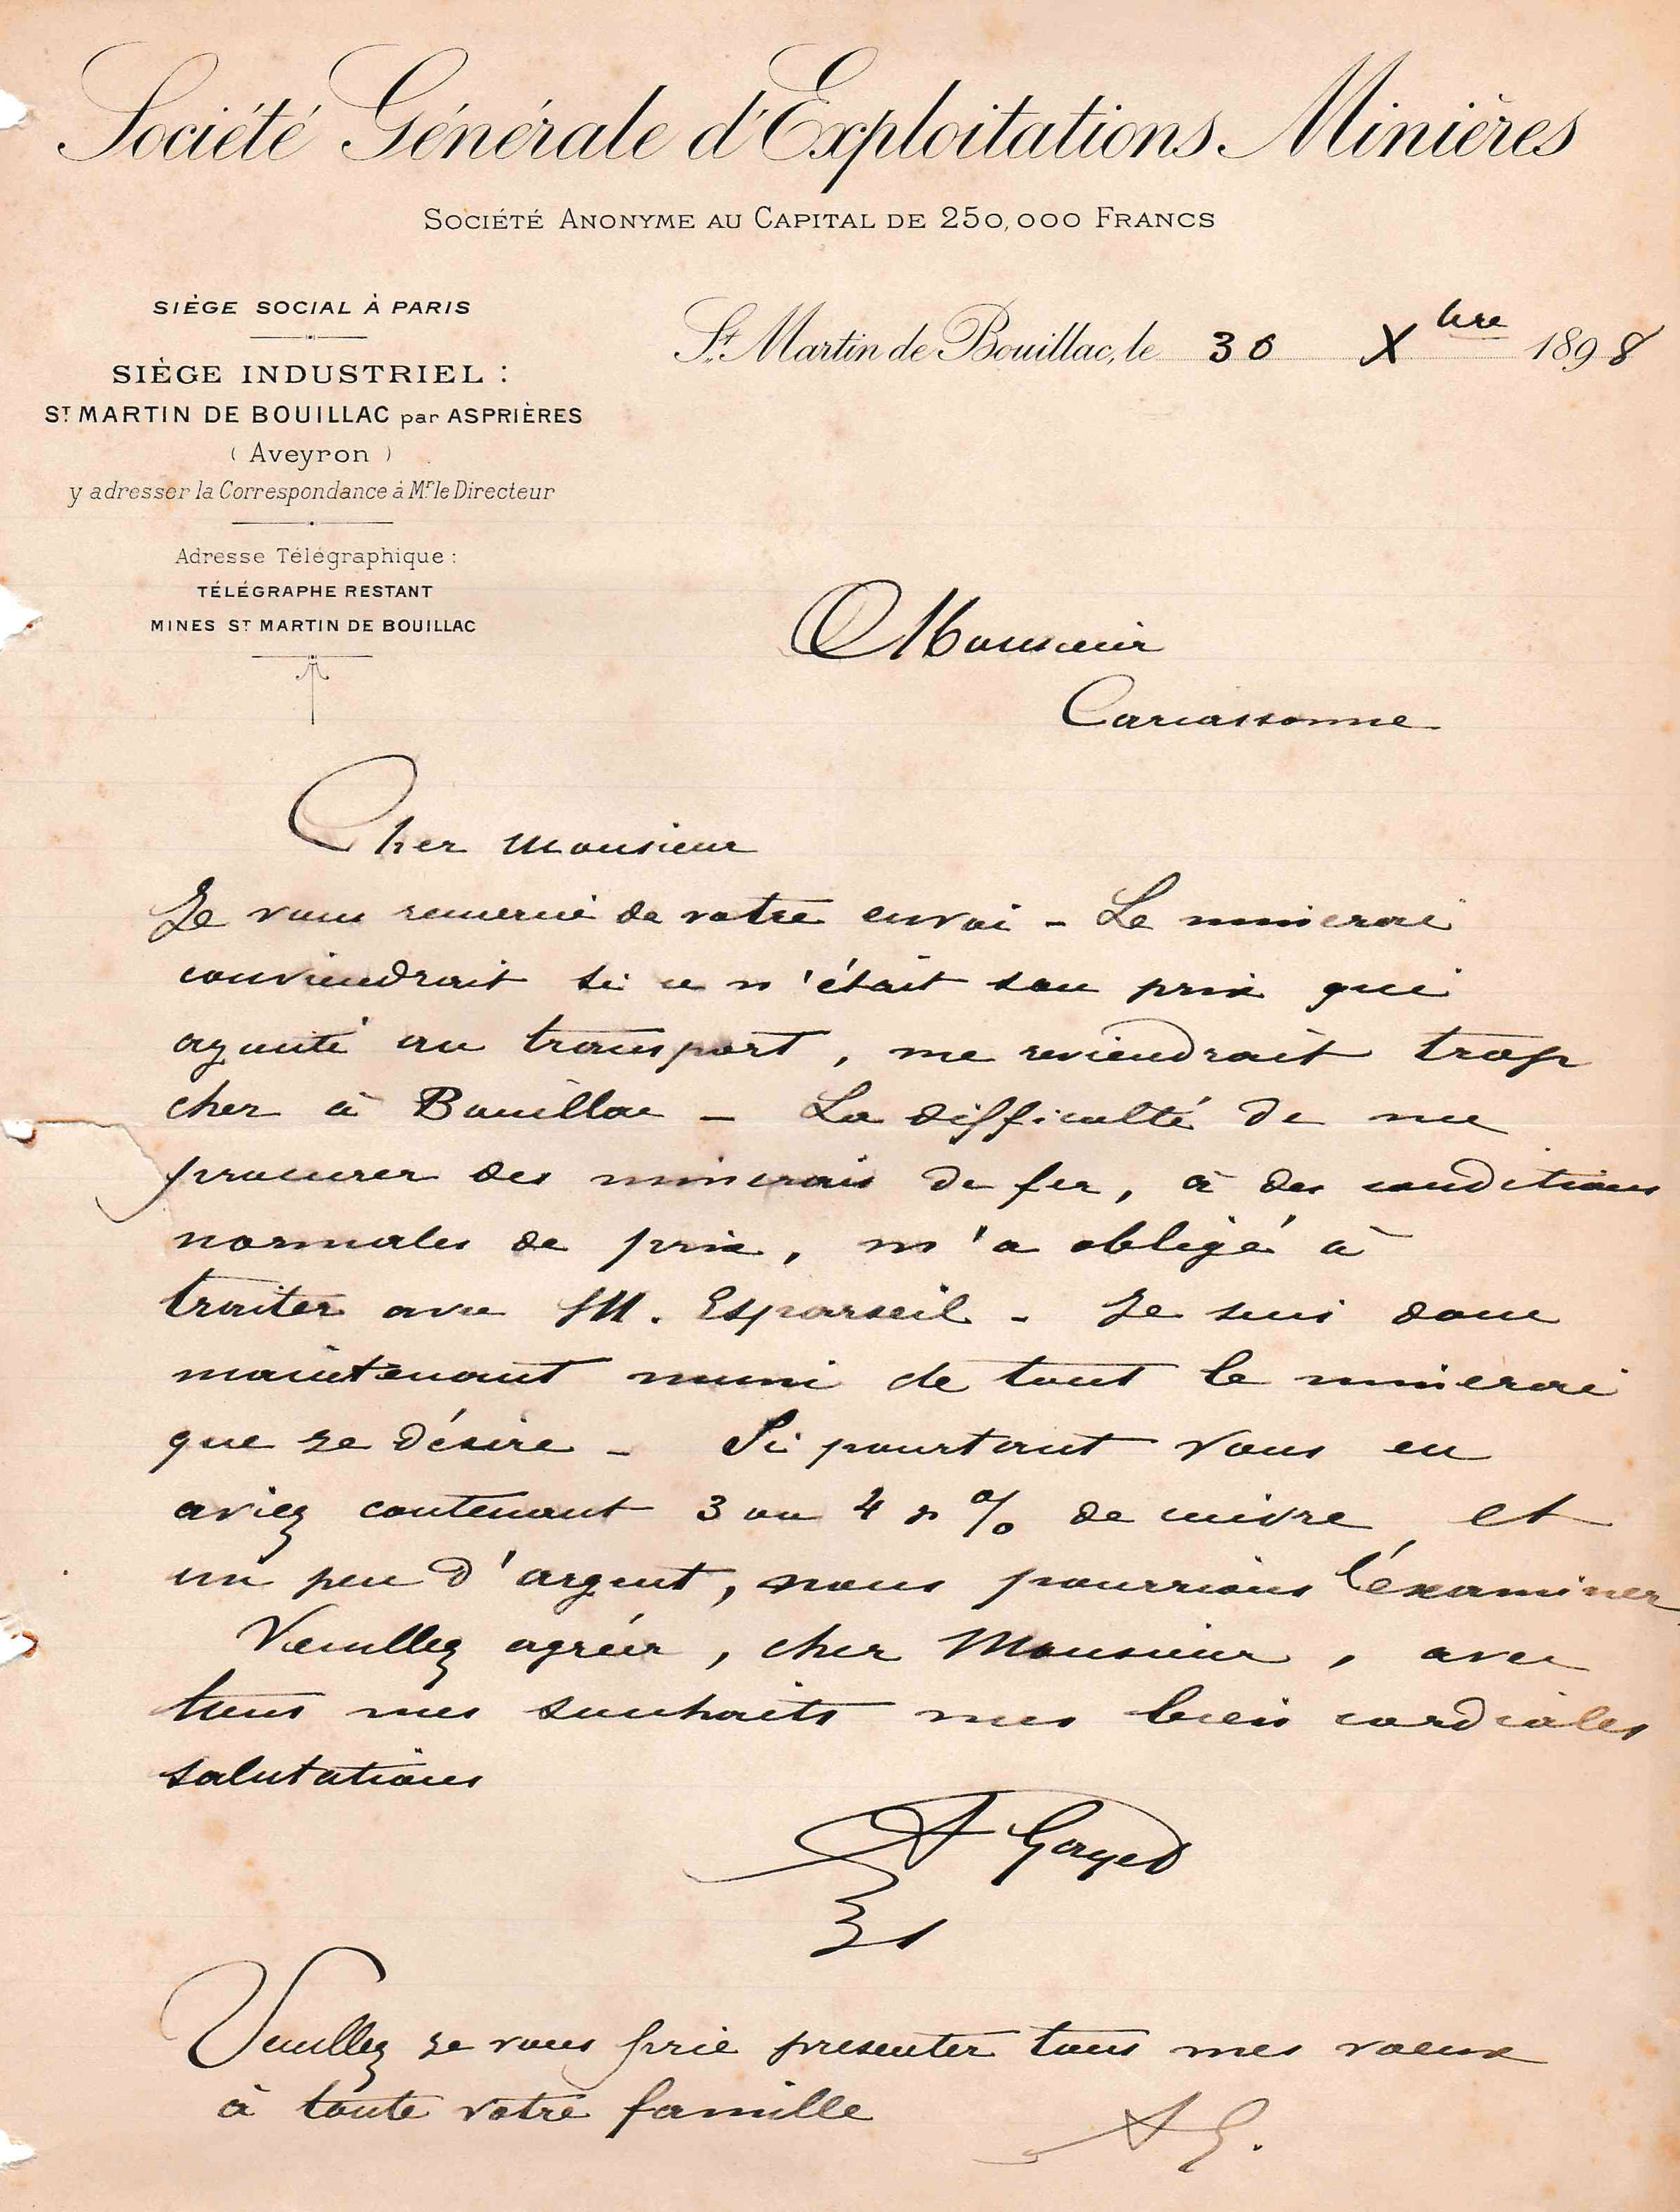 Société Générale d'Exploitations Minières
Société Anonyme au Capital de 250,000 Francs
SIÈGE SOCIAL À PARIS
SIÈGE INDUSTRIEL :
ST MARTIN DE BOUILLAC par ASPRIÈRES
( Aveyron )
y adresser la Correspondance à Mr le Directeur
Adresse Télégraphique :
TÉLÉGRAPHE RESTANT
MINES ST MARTIN DE BOUILLAC
St Martin de Bouillac, le 30 Xbre 1898
Monsieur
Carcassonne
Cher Monsieur
Je vous remercie de votre envoi - Le minerai
conviendrait si ce n'était son prix qui
ajouté au transport, me reviendrait trop
cher à Bouillac - La difficulté de me
procurer des minerais de fer, à des conditions
normales de prix, m'a obligé à
traiter avec M. Esparseil - Je suis donc
maintenant muni de tout le minerai
que je désire - Si pourtant vous en
aviez contenant 3 ou 4 % de cuivre et
un peu d'argent, nous pourrions l'éxaminer
Veuillez agréer, cher Monsieur, avec
tous mes souhaits mes bien cordiales
salutations
A Gayed
Veuillez je vous prie presenter tous mes voeux
à toute votre famille
A G.